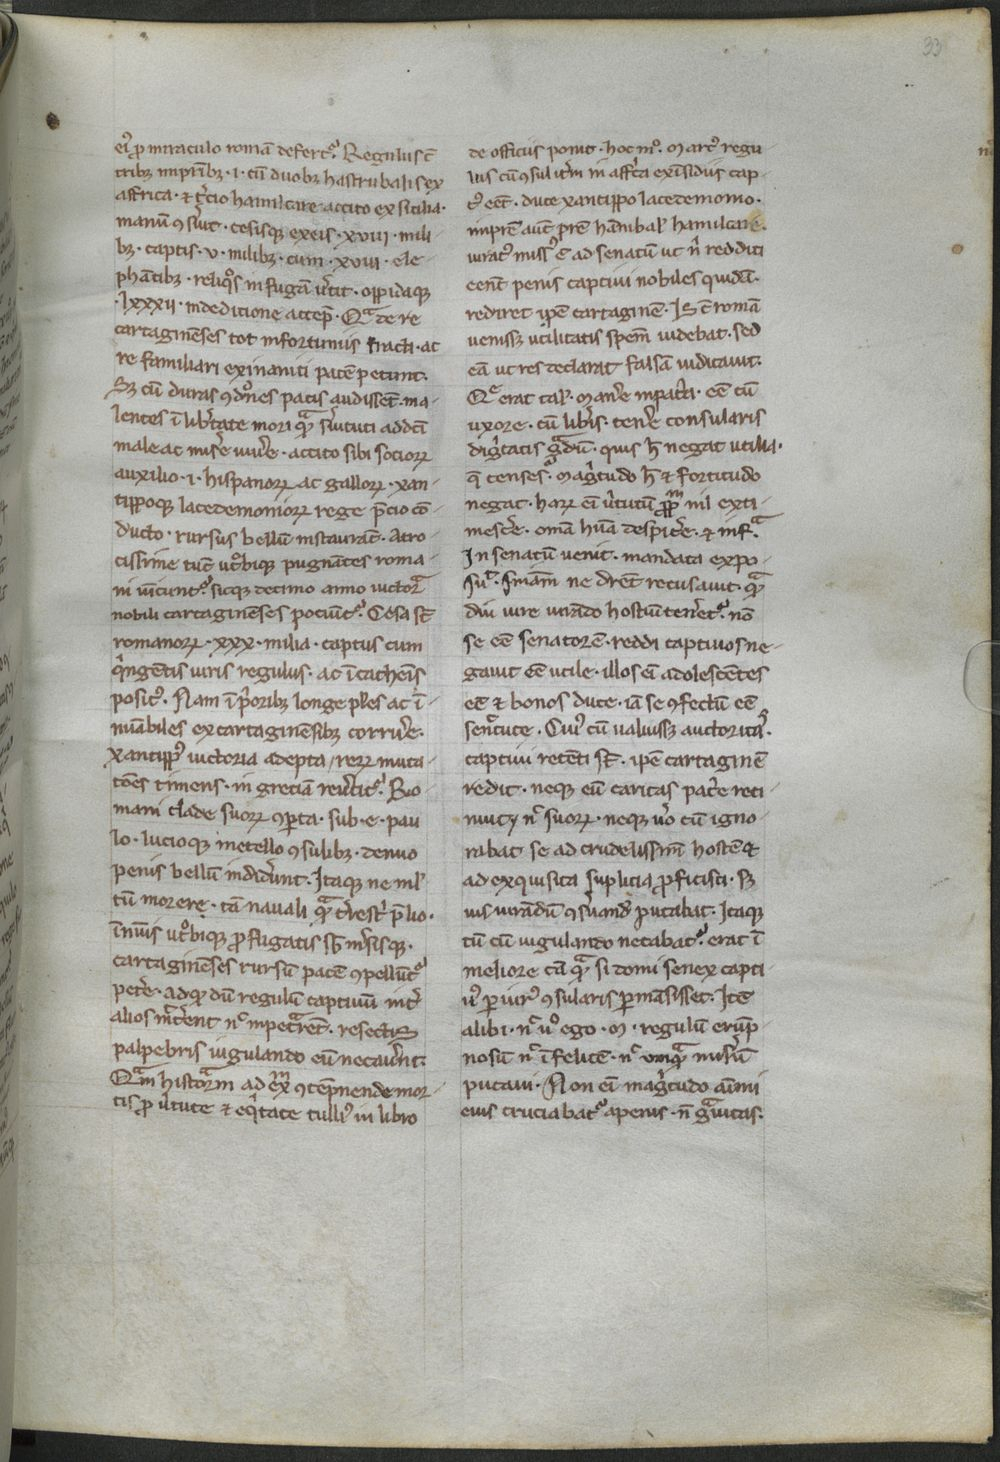 33
ei⁹ ꝓ miraculo romā defert᷒. Regulus ꝯ̄
tribꝫ imprīb; · i · cū duobꝫ hastrubalis ex
affrica · ⁊ t̓cio hamilcare accito ex sicilia ·
manū ↄs̓uit · cesisqꝫ ex eis · xviii · mili-
bꝫ · captis · v · milibꝫ · cum · xviii · ele-
phātibꝫ · reliq̊s in fugā u̓tit · opp̄idaqꝫ
· lxxxii · in deditione accep̄ · Qᵃ de re
cartaginēses tot infortuniis fracti · ac
re familiari exinaniti pacē petunt.
Sꝫ cū duras ↄdōnes pacis audissēt · ma-
lentes ī lib̓tate mori qᵃ̄ s̓uituti addcī
male ac mis̓e uiu̓e · accito sibi socioꝝ
auxilio · i · hispanoꝝ ac galloꝝ · xan-
tippoqꝫ lacedemonioꝝ rege p̄cio cō-
ducto · rursus bellū instaurāt · Atro-
cissime tūc ut͛bique pugnātes roma-
ni uīcunt᷒ · sicqꝫ decimo anno uictorᵃ
nobili cartaginēses pociūt᷒ · Cesa sт̄
romanoꝝ · xxx · milia · captus cum
qⁱngētis uiris regulus · ac ī cathenis
posit⁹ · Nam ī p̓oribꝫ longe pl̓es ac ī-
nuābiles ex cartaginēsibꝫ corru̓e ·
xantipp⁹ uictoria adepta / reꝝ muta-
tōes timens · in greciā reu̓tit᷒ · Ro-
mani clade suoꝝ ↄp̄ta · sub · e · pau-
lo · lucioqꝫ metello ↄsulibꝫ · denuo
penis bellū indid̓unt · Itaqꝫ ne nil̓
tū morere · tā nauali qᵃ̄ t̓rest̓ p̄lio ·
īnuīs ut͛bique ꝓfligatis sb̄ m̓sisqꝫ ·
cartaginēses rursū pacē ↄpellūt᷒
pet̓e · adqꝫ dū regulū captiuū int̓
alios mīt̓ent n͛ impetrᵃrēt · resectis
palpebris uigilando eū necau̓nt.
Qᵃm historᵃm ad exᵐ ↄtēpnende mor-
tis ꝓ u̓tute ⁊ eq̓tate tulli⁹ in libro
de officiis ponit · hoc mᵒ · Marc⁹ regu-
lus cū ↄsul it̓m in affrīca ex īsidiis cap-
t⁹ eēt · duce xantippo lacedemonio ·
imprē aut̄ prē hānibal̓ hamilcare ·
iurat⁹ miss⁹ ē ad senatū ut n̄ redditi
eent penis captiui nobiles quidā ·
rediret ipē cartaginē · Is cū romā
uenissꝫ utilitatis spem̄ uidebat · sed
eā ut res declarat falsā iudicauit.
Qᵉ erat tal̓ · Man̓e in pat̓ia · eē cū
uxore · cū lib̓is · ten̓e consularis
dignitatis gᵃdū · quis h̄ negat utilia ·
q̄ censes᷒ · Magnitudo h̄ ⁊ fortitudo
negat · haꝝ eī u̓tutū ꝓprⁱᵐ nil exti-
mesc̓e · om̄a hūa despic̓e · ⁊ infᵃ ·
In senatū uenit · mandata expo-
suit · sn̄iam ne dicēt recusauit · qᵃ̄-
diu iure iurādo hostiū tener̄et᷒ · nō
se eē senatorē · reddi captiuos ne-
gauit eē utile · illos eī adolescētes
eē ⁊ bonos duces · iā se ↄfectū eē
senectute · Cui⁹ cū ualuissꝫ auctoritas ·
captiui retēti sт̄ · ipē cartaginē
redit · neqꝫ eū caritas patr̓e reti-
nuit / n͛ suoꝝ · neqꝫ u̓o tū igno-
rabat se ad crudelissim̄ hostē ⁊
ad exquisita suplicia ꝓficisci · sꝫ
ius iurādū ↄs̓uand̄ putabat · Itaqꝫ
tū cū uigilando necabat᷒ · erat ī
meliore cā qᵃ̄ si domi senex capti-
u⁹ ꝑiur⁹ ↄsularis ꝑmāsisset · Itē
alibi · n͛ u̓o ego · M · regulū erūp-
nosū n͛ īfelicē · n͛ umqᵃ̄ mis̓ū
putaui · Non eī magnitudo aīmi
eius cruciabat᷒ a penis · n̄ gᵃuitas ·